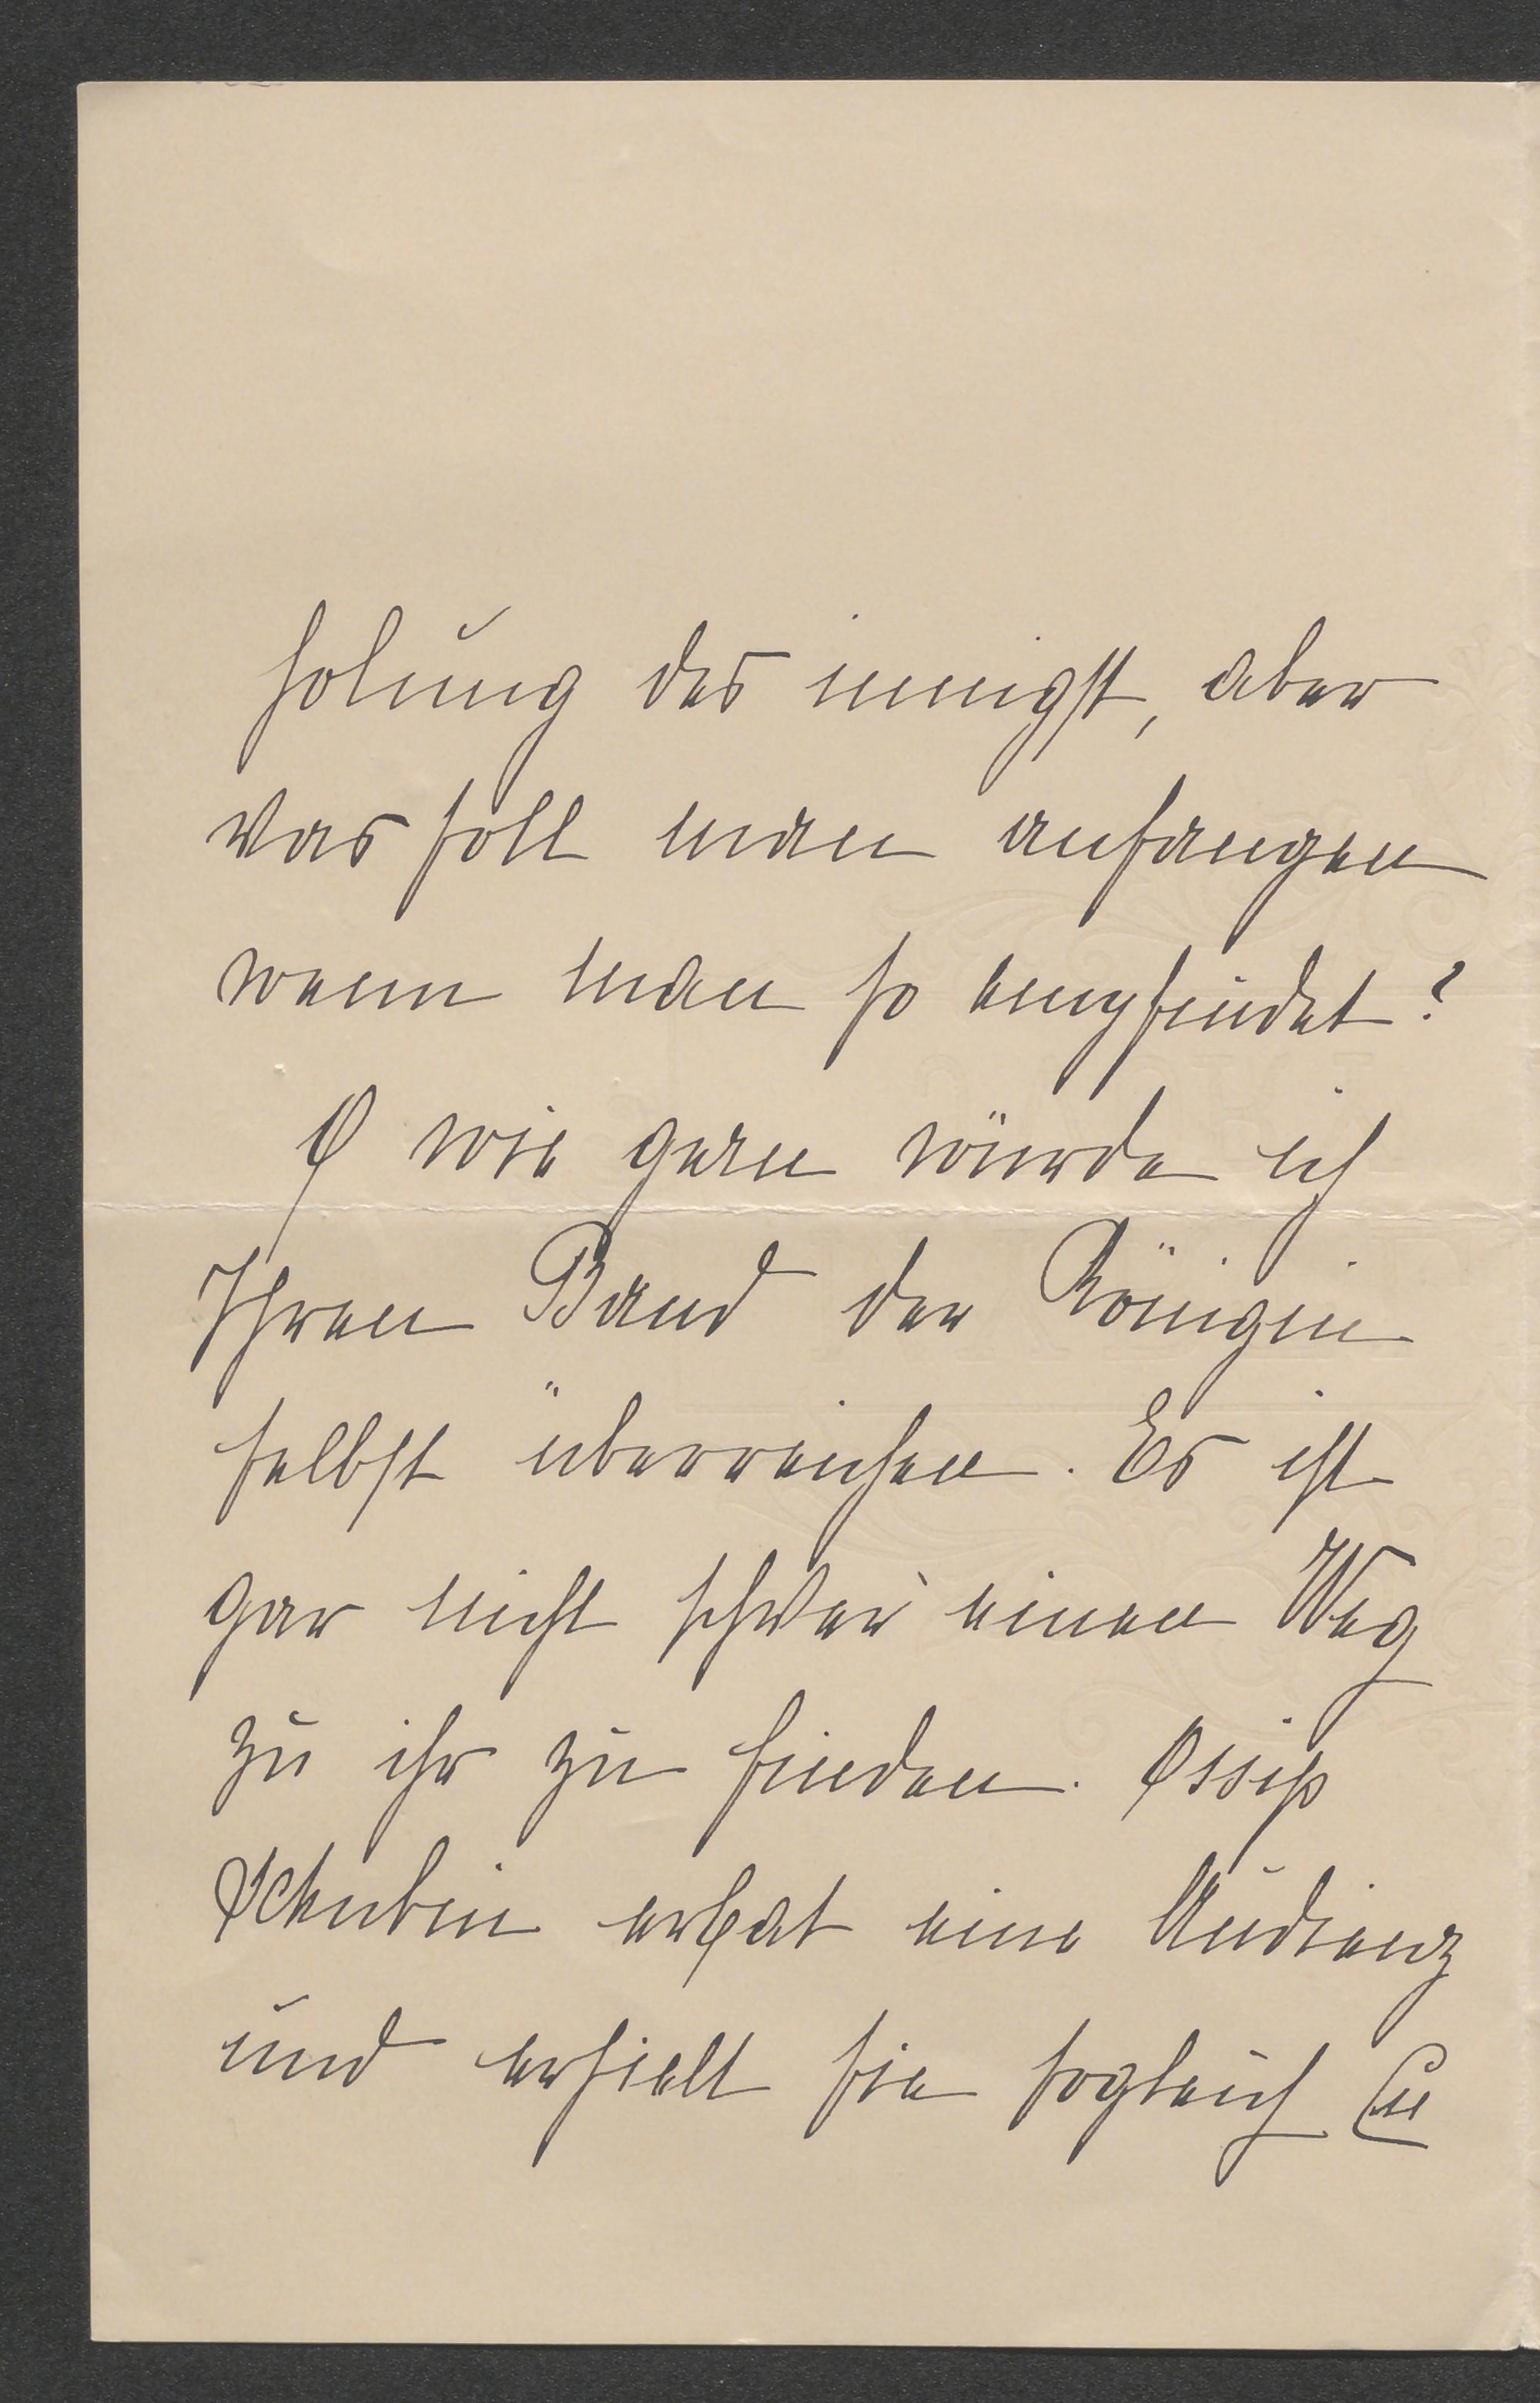 holung des innigst, aber
was soll man anfangen
wenn man so empfindet?
O wie gern würde ich
Ihren Band der Königin
selbst überreichen. Es ist
gar nicht schwer einen Weg
zu ihr zu finden. Ossip
Schubin erbat eine Audienz
und erhielt sie sogleich